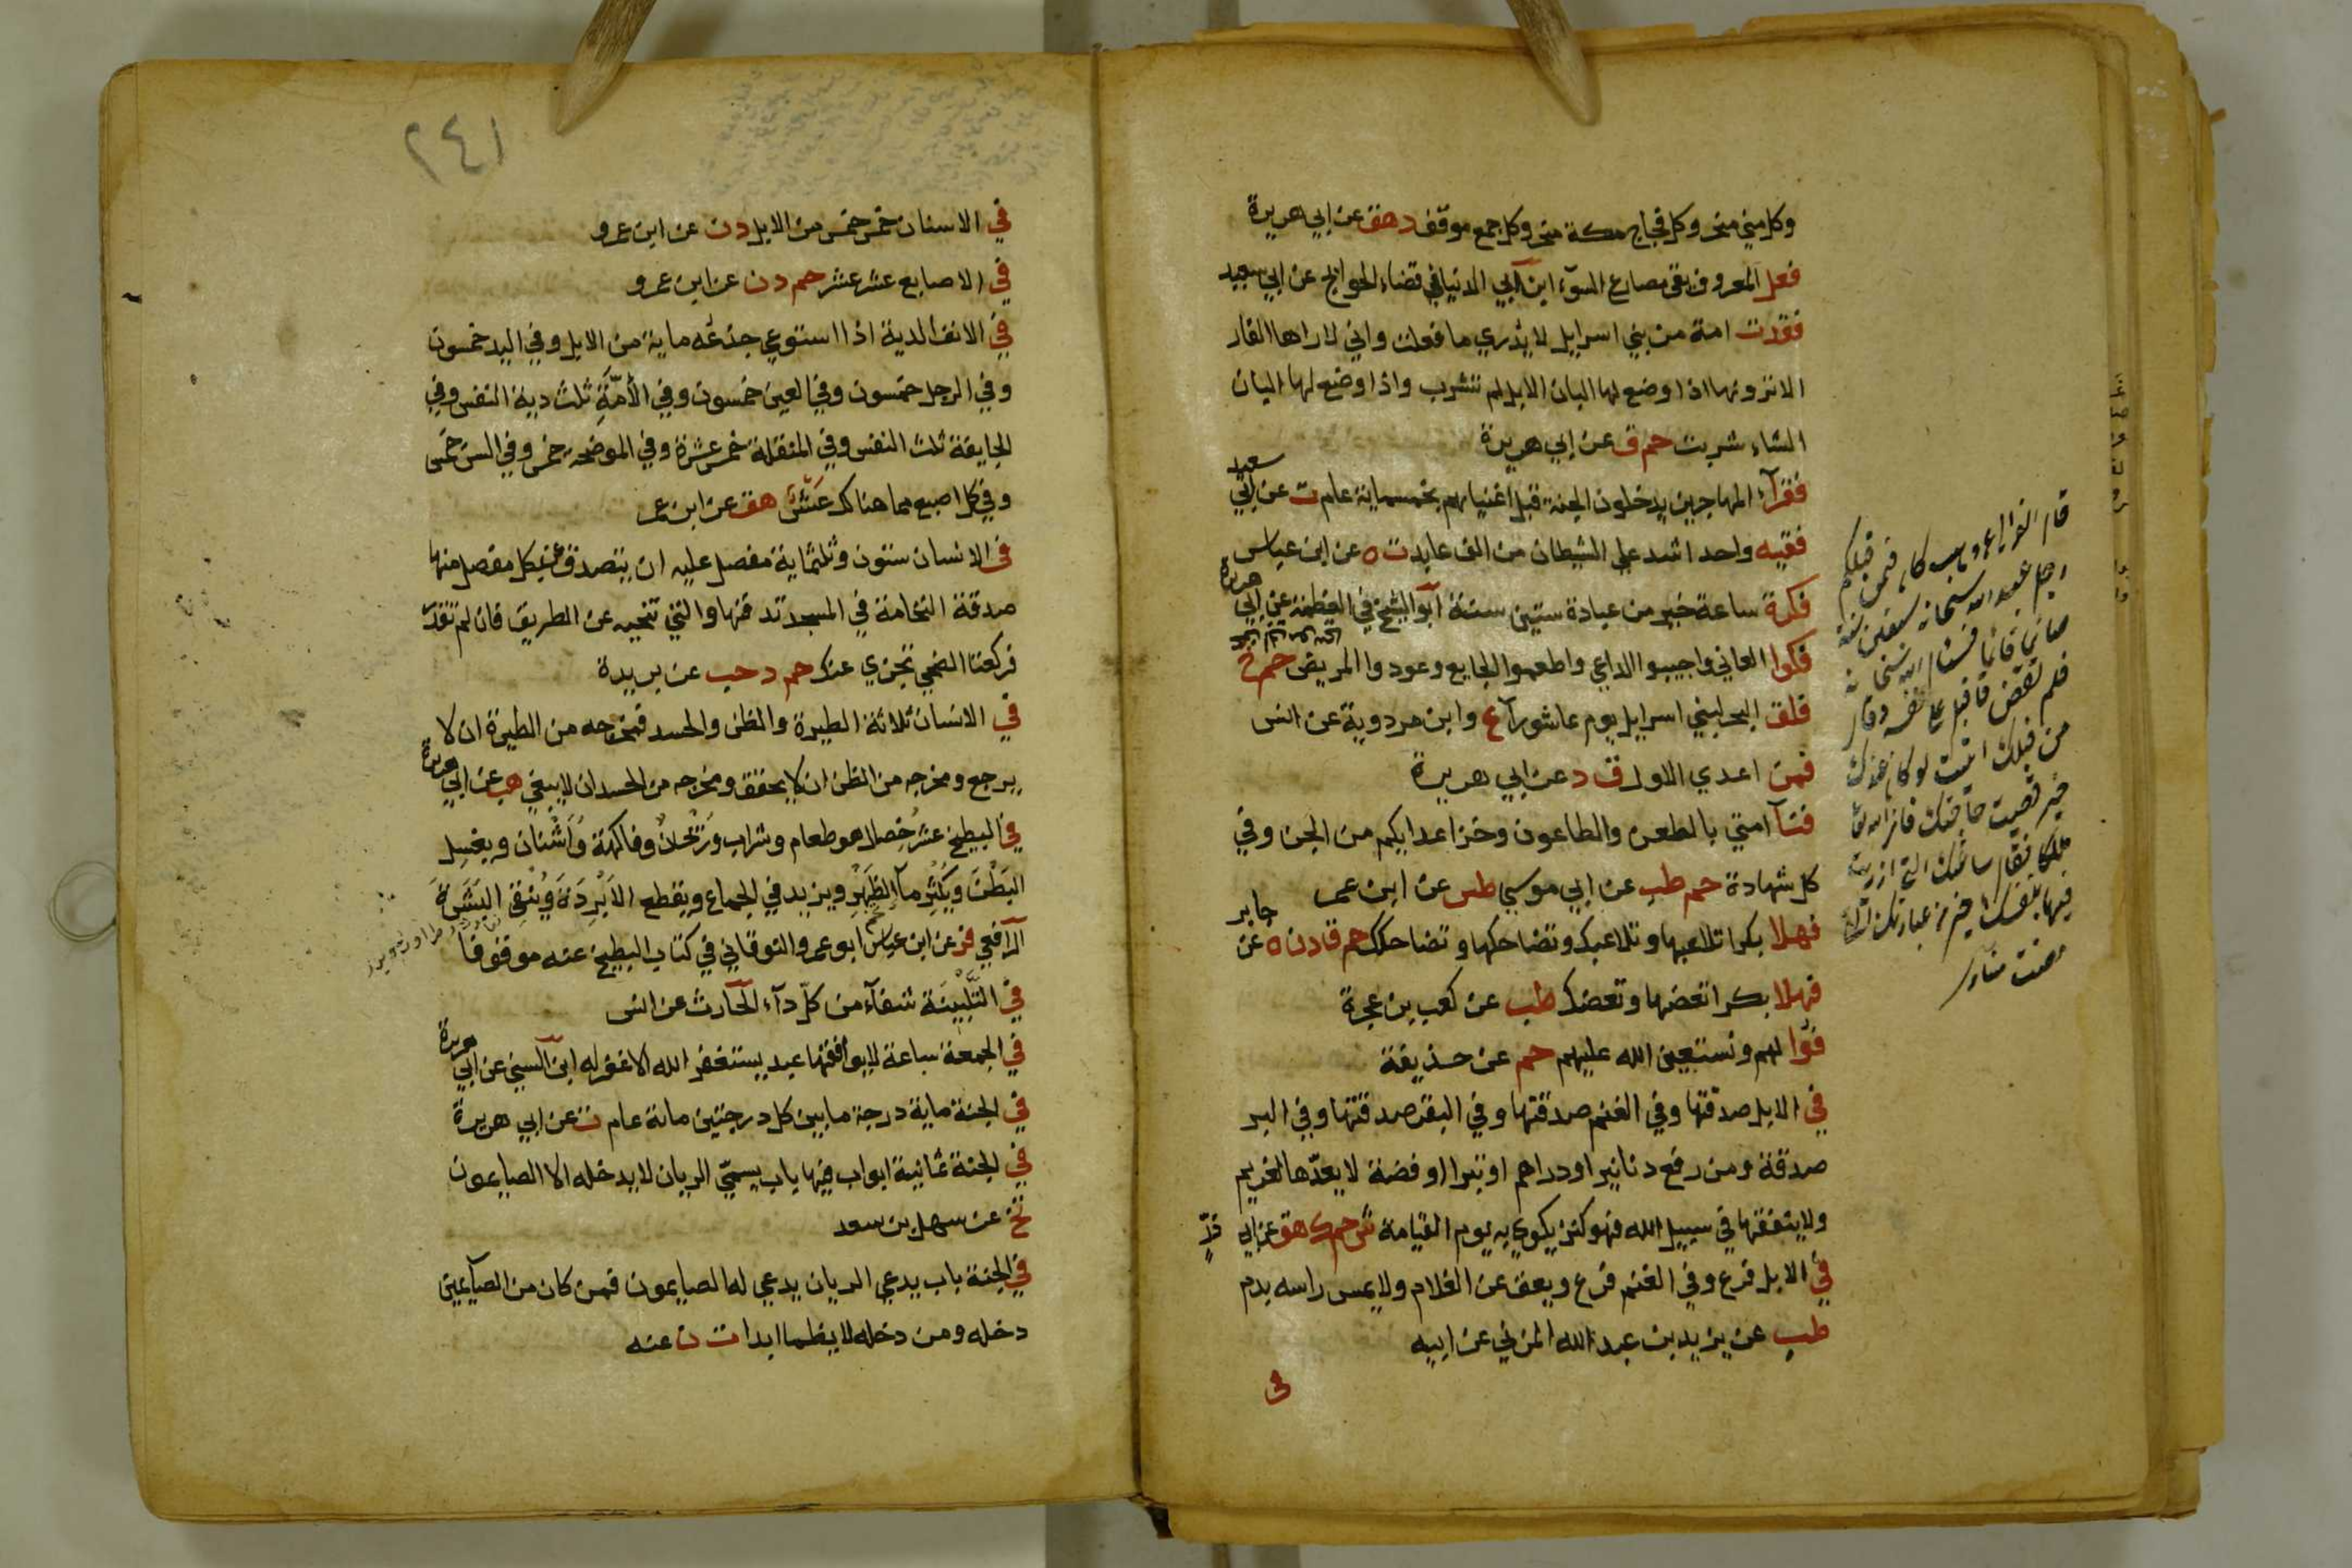 وكل منى منحر وكل فجاج مكة منحر وكل جمع موقف د هق عن ابي هريرة
فعل المعروف يقي مصارع السوء ابن ابي الدنيا في قضاء الحوايج عن ابي سعيد
فقدت امة من بني اسرايل لا يدري ما فعلت واني لا اراها الا الفار
الا ترونها اذا وضع لها البان الابل لم تشرب واذا وضع لها البان
الشاء شربت حم ق عن ابي هريرة
فقرآء المهاجرين يدخلون الجنة قبل اغنيايهم بخمسماية عام ت عن ابي سعيد
فقيه واحد اشد على الشيطان من الف عابد ت ه عن ابن عباس
فكرة ساعة خير من عبادة ستين سنة ابو الشيخ في العظمة عن ابي هريرة
فكوا العاني واجيبوا الداعي واطعموا الجايع وعودوا المريض حم خ
فلق البحر لبني اسرايل يوم عاشورآ ع وابن مردوية عن انس
فمن اعدي الاول ق د عن ابي هريرة
فنآ امتي بالطعن والطاعون وخز اعدايكم من الجن وفي
كل شهادة حم طب عن ابي موسي طس عن ابن عمر
فهلا بكرا تلاعبها وتلاعبك وتضاحكها وتضاحكك حم ق د ن ه عن جابر
فهلا بكرا تعضها وتعضك طب عن كعب بن عجرة
فوا لهم ونستعين الله عليهم حم عن حذيفة
في الابل صدقتها وفي الغنم صدقتها وفي البقر صدقتها وفي البر
صدقة ومن رفع دنانير او دراهم او تبرا او فضة لا يعدها لغريم
ولا ينفقها في سبيل الله فهو كنز يكوي به يوم القيامة ش حم ك هق عن ابي ذر
في الابل فرع وفي الغنم فرع ويعق عن الغلام ولا يمس راسه بدم
طب عن يزيد بن عبد الله المزني عن ابيه
في
٢٤١
في الاسنان خمس خمس من الابل د ن عن ابن عمرو
في الاصابع عشر عشر حم د ن عن ابن عمرو
في الانف الدية اذا استوعي جدعه ماية من الابل وفي اليد خمسون
وفي الرجل خمسون وفي العين خمسون وفي الآمة ثلث دية النفس وفي
الجايفة ثلث النفس وفي المنقلة خمس عشرة وفي الموضحه خمس وفي السن خمس
وفي كل اصبع مما هنالك عشر هق عن ابن عمر
في الانسان ستون وثلثماية مفصل عليه ان يتصدق عن كل مفصل منها
صدقة النخامة في المسجد تدفنها والشي تنحيه عن الطريق فان لم تقدر
فركعتا الضحي تجزي عنك حم د حب عن بريدة
في الانسان ثلاثة الطيرة والظن والحسد فمخرجه من الطيرة ان لا
يرجع ومخرجه من الظن ان لا يحقق ومخرجه من الحسد ان لا يبغي هب عن ابي هريرة
في البطيخ عشر خصال هو طعام وشراب وريحان وفاكهة واشنان ويغسل
البطن ويكثر مآ الظهر ويزيد في الجماع ويقطع الابردة وينقي البشرة
الرافعي فر عن ابن عباس ابو عمرو النوقاني في كتاب البطيخ عنه موقوفا
في التلبينة شفآء من كل دآء الحارث عن انس
في الجمعة ساعة لا يوافقها عبد يستغفر الله الا غفر له ابن السني عن ابي هريرة
في الجنة ماية درجة ما بين كل درجتين ماىة عام ت عن ابي هريرة
في الجنة ثمانية ابواب فيها باب يسمى الريان لا يدخله الا الصايمون
خ عن سهل بن سعد
في الجنة باب يدعي الريان يدعي له الصايمون فمن كان من الصآيمين
دخله ومن دخله لا يظما ابدا ت ن عنه